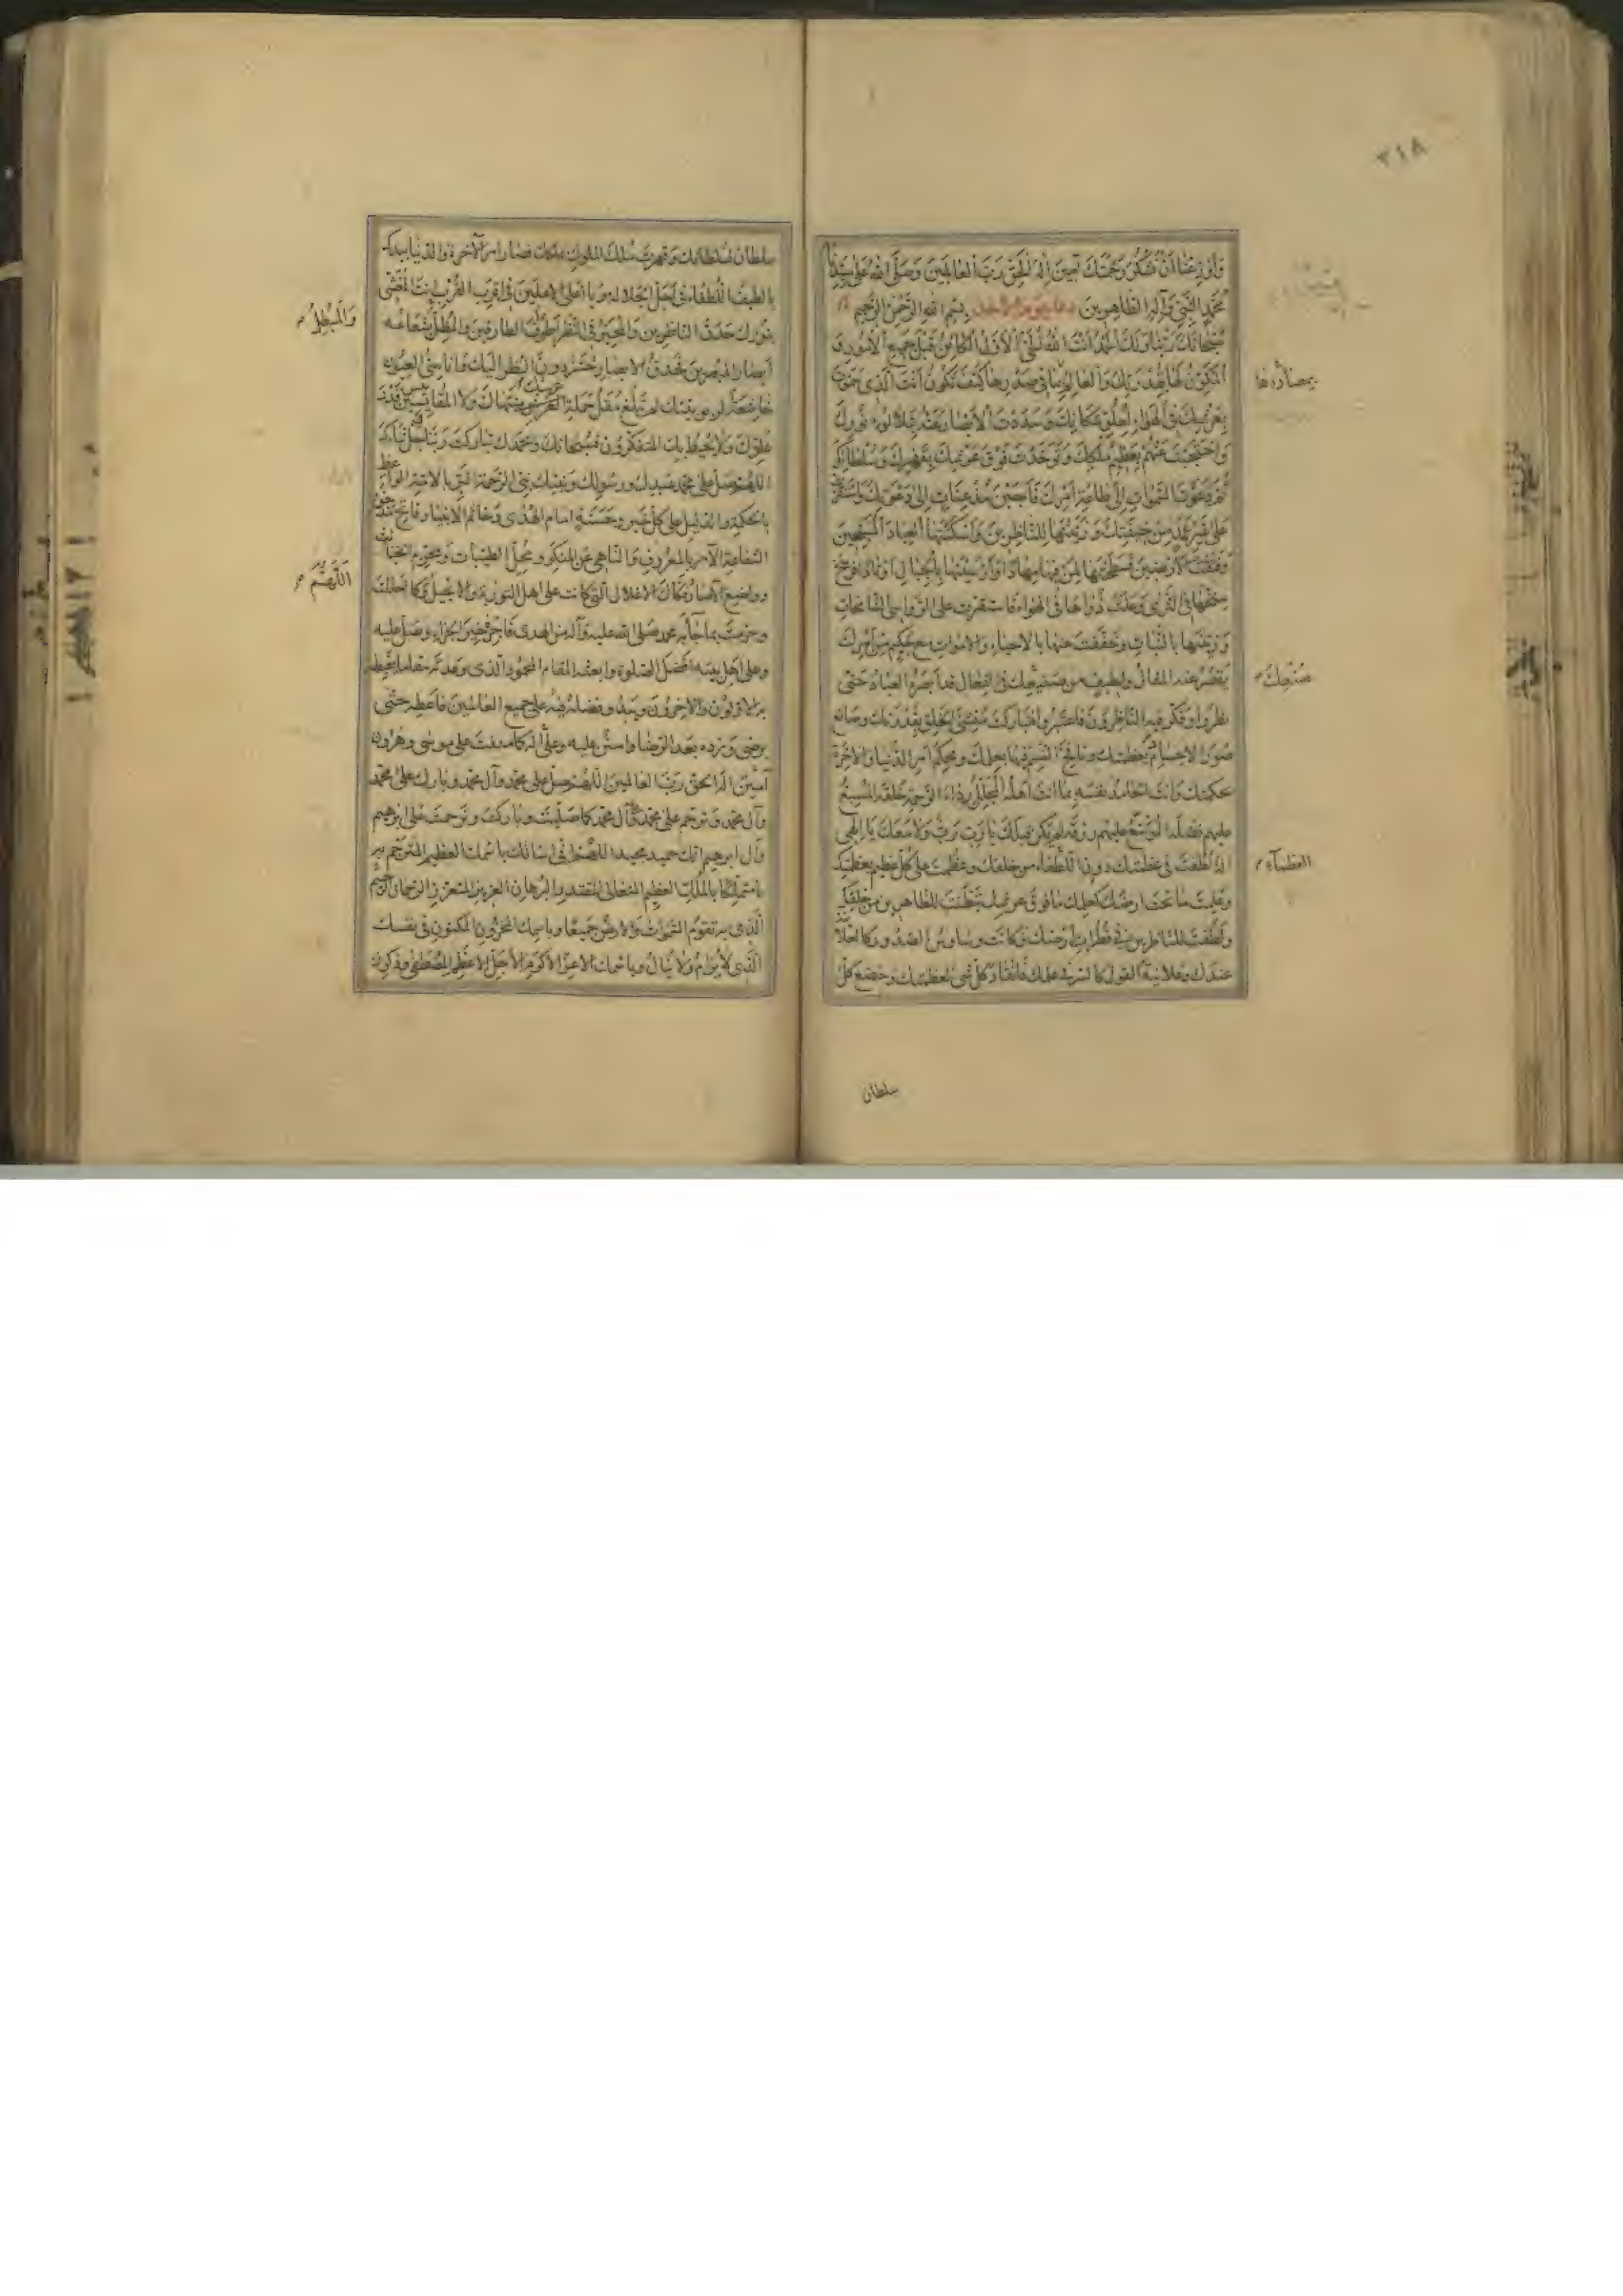 ٢١٨
وَأَوْزِعْنَا أَنْ نَشْكُرَ رَحْمَتَكَ آمِينَ إِلٰهَ الْحَقِّ رَبَّ الْعَالَمِينَ وَصَلَّى اللهُ عَلَى سَيِّدِنَا
مُحَمَّدٍ النَّبِيِّ وَآلِهِ الطَّاهِرِينَ دعاء يوم الأحد بِسْمِ اللهِ الرَّحْمٰنِ الرَّحِيمِ
سُبْحَانَكَ رَبَّنَا وَلَكَ الْحَمْدُ أَنْتَ اللهُ الْأَوَّلُ الْكَائِنُ قَبْلَ جَمِيعِ الْأُمُورِ وَ
الْمُكَوِّنُ لَهَا أَنْتَ الَّذِي سَمَوْتَ
بِعَرْشِكَ فِي الْهَوَاءِ لِعُلُوِّ مَكَانِكَ وَسَدَدْتَ الْأَبْصَارَ عَنْهُ بِتَلَأْلُؤِ نُورِكَ
وَاحْتَجَبْتَ عَنْهُمْ بِعَظِيمِ مُلْكِكَ وَتَوَحَّدْتَ فَوْقَ عَرْشِكَ بِقَهْرِكَ وَسُلْطَانِكَ
ثُمَّ دَعَوْتَ السَّمٰوَاتِ إِلَى طَاعَةِ أَمْرِكَ فَأَجَبْنَ مُذْعِنَاتٍ إِلَى دَعْوَتِكَ وَاسْتَقَرَّتْ
عَلَى غَيْرِ عَمَدٍ مِنْ خِيفَتِكَ وَزَيَّنْتَهَا لِلنَّاظِرِينَ وَأَسْكَنْتَهَا الْعِبَادَ الْمُسَبِّحِينَ
وَفَتَقْتَ الْأَرَضِينَ فَسَطَحْتَهَا لِمَنْ فِيهَا مِهَادًا وَأَرْسَيْتَهَا بِالْجِبَالِ أَوْتَادًا فَرَسَخَ
سِنْخُهَا فِي الثَّرَى وَعَلَتْ ذُرَاهَا فِي الْهَوَاءِ فَاسْتَقَرَّتْ عَلَى الرَّوَاسِي الشَّامِخَاتِ
وَزَيَّنْتَهَا بِالنَّبَاتِ وَخَفَّفْتَ عَنْهَا بِالْأَحْيَاءِ وَالْأَمْوَاتِ مَعَ حَكِيمٍ مِنْ أَمْرِكَ
يَقْصُرُ عَنْهُ الْمَقَالُ وَلَطِيفٍ مِنْ صُنْعِكَ فِي الْفِعَالِ قَدْ أَبْصَرَهُ الْعِبَادُ حَتَّى
نَظَرُوا وَفَكَّرَ فِيهِ النَّاظِرُونَ فَاعْتَبَرُوا فَتَبَارَكْتَ مُنْشِئَ الْخَلْقِ بِقُدْرَتِكَ وَصَانِعَ
صُوَرِ الْأَجْسَامِ بِعَظَمَتِكَ وَنَافِخَ النَّسَمِ فِيهَا بِعِلْمِكَ وَمُحْكِمَ أَمْرِ الدُّنْيَا وَالْآخِرَةِ
بِحِكْمَتِكَ وَأَنْتَ الْحَامِدُ نَفْسَهُ بِمَا أَنْتَ أَهْلُهُ الْمُجَلِّلُ رِدَاءَ الرَّحْمَةِ خَلْقَهُ الْمُسْبِغُ
عَلَيْهِمْ فَضْلَهُ الْمُوَسِّعُ عَلَيْهِمْ رِزْقَهُ لَمْ يَكُنْ قَبْلَكَ يَا رَبِّ رَبٌّ وَلَا مَعَكَ يَا إِلٰهِي
لَطُفْتَ فِي عَظَمَتِكَ دُونَ اللُّطَفَاءِ مِنْ خَلْقِكَ وَعَظُمْتَ عَلَى كُلِّ عَظِيمٍ بِعَظَمَتِكَ
وَعَلِمْتَ مَا تَحْتَ أَرْضِكَ كَعِلْمِكَ مَا فَوْقَ عَرْشِكَ تَبَطَّنْتَ لِلظَّاهِرِينَ مِنْ خَلْقِكَ
وَلَطُفْتَ لِلنَّاظِرِينَ فِي قَطَرَاتِ أَرْضِكَ فَكَانَتْ وَسَاوِسُ الصُّدُورِ كَالْعَلَانِيَةِ
عِنْدَكَ وَعَلَانِيَةُ الْقَوْلِ كَالسِّرِّ فِي عِلْمِكَ فَانْقَادَ كُلُّ شَيْءٍ لِعَظَمَتِكَ وَخَضَعَ كُلُّ
صُنْعِكَ
العظماء
سلطان
سلطان لسلطانك وقهرت ملك الملوك بملكك فصار أمر الآخرة والدنيا بيدك
يا لطيف اللطفاء في أجل الجلالة ويا أعلى الأعلين في أقرب القرب أنت المغشي
بنورك حدق الناظرين والمحير في النظر أطرف الطارفين والمظل شعاعه
أبصار المبصرين فحدق الأبصار حسر دون النظر إليك وأناسي العيون
خاشعة لربوبيتك لم تبلغ مقل حملة العرش منتهاك ولا المقاييس قدر
علوك ولا يحيط بك المتفكرون فسبحانك وبحمدك تباركت ربنا جل ثناؤك
اللهم صل على محمد عبدك ورسولك ونبيك نبي الرحمة
بالحكمة والدليل على كل خير وحسنة إمام الهدى وخاتم الأنبياء وفاتح
الشفاعة الآمر بالمعروف والناهي عن المنكر ومحل الطيبات ومحرم الخبائث
وواضع الآصار وفكاك الأغلال التي كانت على أهل التوراة والإنجيل وكما أحللت
وحرمت بما جاء به محمد صلى الله عليه وآله من الهدى فاجزه خير الجزاء وصل عليه
وعلى أهل بيته أفضل الصلوة وابعثه المقام المحمود الذي وعدته مقاما يغبطه
به الأولون والآخرون ويبدو فضله فيه على جميع العالمين فأعطه حتى
يرضى وزده بعد الرضا وامنن عليه وعلى آله كما مننت على موسى وهرون
آمين إله الحق رب العالمين اللهم صل على محمد وآل محمد وبارك على محمد
وآل محمد وترحم على محمد وآل محمد كما صليت وباركت وترحمت على إبرهيم
وآل إبرهيم إنك حميد مجيد اللهم إني أسألك باسمك العظيم
بالملك العظيم المتعالي المقتدر البرهان العزيز المتعزز الرحمان الرحيم
الذي به تقوم السموات والأرض جميعا وباسمك المخزون المكنون في نفسك
الذي لا يرام ولا ينال وباسمك الأعز الأكرم الأجل الأعظم المصطفى وذكرك
اللَّهُمَّ